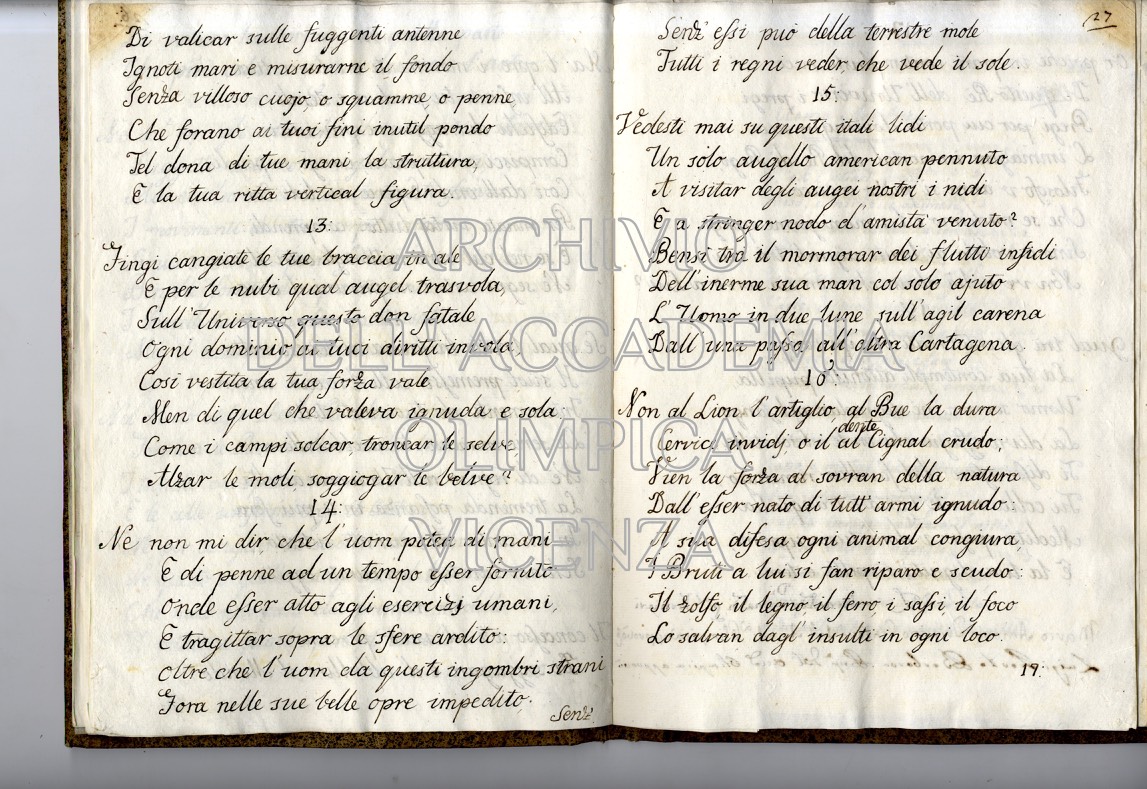 Di valicar sulle fuggenti antenne
Ignoti mari e misurarne il fondo
Senza villoso cuojo, o squamme, o penne,
Che forano ai tuoi fini inutil pondo
Tel dona di tue mani la struttura,
E la tua ritta vertical figura,
13:
Fingi cangiate le tue braccia in ale
E per le nubi qual augel trasvola,
Sull'Universo questo don fatale
Ogni dominio ai tuoi diritti invola,
Così vestita la tua forza vale
Men di quel che valeva ignuda e sola
Come i campi solcar, troncar le selve,
Alzar le moli, soggiogar le belve?
14:
Nè non mi dir, che l'uom potea di mani
E di penne ad un tempo esser fornito
Onde esser atto agli esercizj umani,
E tragittar sopra le sfere ardito:
Oltre che l'uom da questi ingombri strani
Fora nelle sue belle opre impedito,
Senz'
27
Senz' essi può della terrestre mole
Tutti i regni veder, che vede il sole.
15:
Vedesti mai su questi itali lidi
Un solo augello american pennuto
A visitar degli augei nostri i nidi
E a stringer nodo d'amistà venuto?
Bensì trà il mormorar dei flutti infidi
Dell'inerme sua man col solo ajuto
L'Uomo in due lune sull'agil carena
Dall'una passo all'oltra Cartagena.
16.
Non al Lion l'artiglio, al Bue la dura
Cervice invidj, o il dente al Cignal crudo;
Vien la forza al sovran della natura
Dall'esser nato di tutt'armi ignudo:
A sua difesa ogni animal congiura,
I Bruti a lui si fan riparo e scudo:
Il zolfo, il legno, il ferro, i sassi, il foco
Lo salvan dagl'insulti in ogni loco.
17:
ARCHIVIO
DELL'ACCADEMIA
OLIMPICA
VICENZA